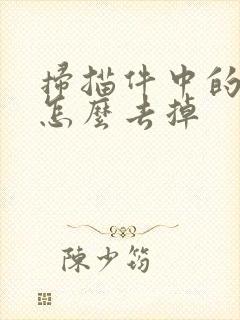 掃描件中的
怎麼去掉
陳少筠